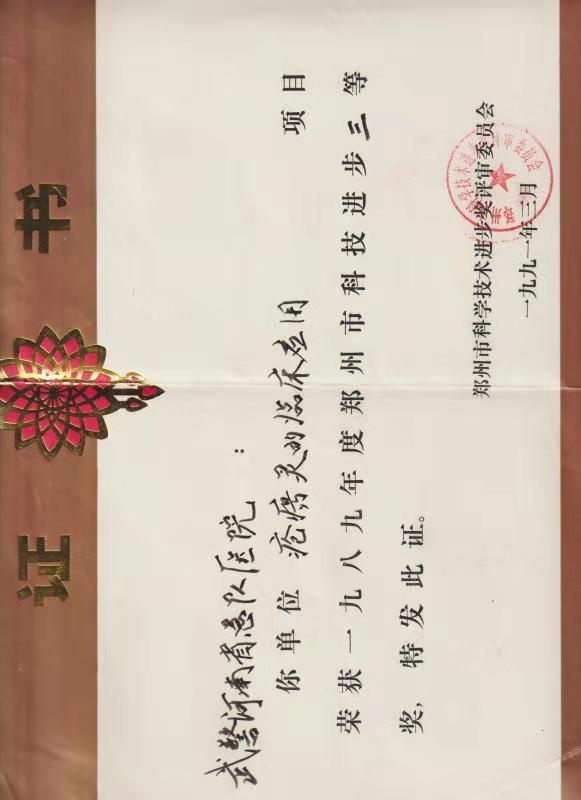 证书
武警河南省总队医院：
你单位 疮疡灵的临床应用 项目
荣获一九八九年度郑州市科技进步三等
奖，特发此证。
郑州市科学技术进步奖评审委员会
一九九一年三月